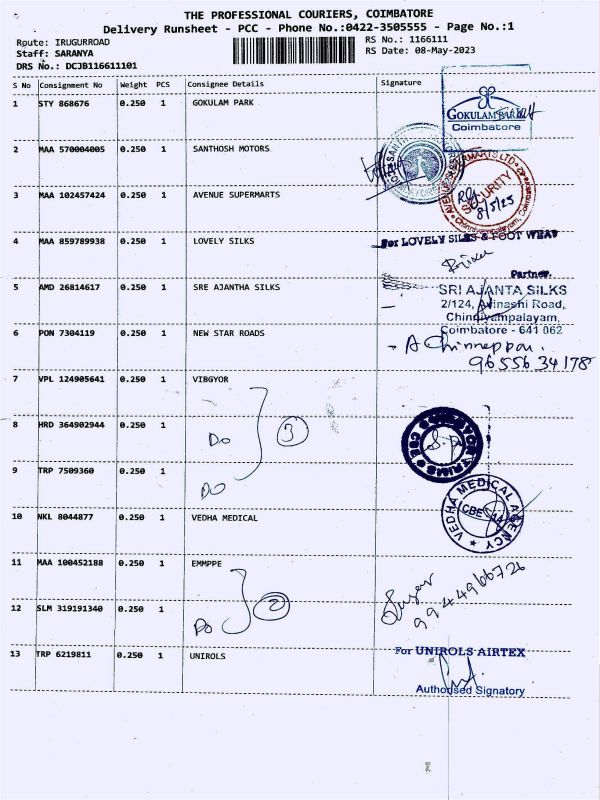 THE PROFESSIONAL COURIERS, COIMBATORE
Delivery Runsheet - PCC - Phone No.:0422-3505555 - Page No.:1
Route: IRUGURROAD
Staff: SARANYA
DRS No.: DCJB116611101
RS No.: 1166111
RS Date: 08-May-2023
S No Consignment No Weight PCS Consignee Details Signature
1 STY 868676 0.250 1 GOKULAM PARK
GOKULAM PARK
Coimbatore
2 MAA 570004005 0.250 1 SANTHOSH MOTORS
3 MAA 102457424 0.250 1 AVENUE SUPERMARTS
AVENUE SUPERMARTS LTD
SECURITY
Chinniyampalayam, Coimbatore
4 MAA 859789938 0.250 1 LOVELY SILKS
For LOVELY SILKS & FOOT WEAR
Partner.
5 AMD 26814617 0.250 1 SRE AJANTHA SILKS
SRI AJANTA SILKS
2/124, Avinashi Road,
Chinniyampalayam,
Coimbatore - 641 062
6 PON 7304119 0.250 1 NEW STAR ROADS
- A Chinnappan.
96556 34178
7 VPL 124905641 0.250 1 VIBGYOR
8 HRD 364902944 0.250 1 Do 3
9 TRP 7509360 0.250 1 Do
10 NKL 8044877 0.250 1 VEDHA MEDICAL
VEDHA MEDICAL AGENCY
CBE-14
11 MAA 100452188 0.250 1 EMMPPE
9944966726
12 SLM 319191340 0.250 1 Do 2
13 TRP 6219811 0.250 1 UNIROLS
For UNIROLS AIRTEX
Authorised Signatory